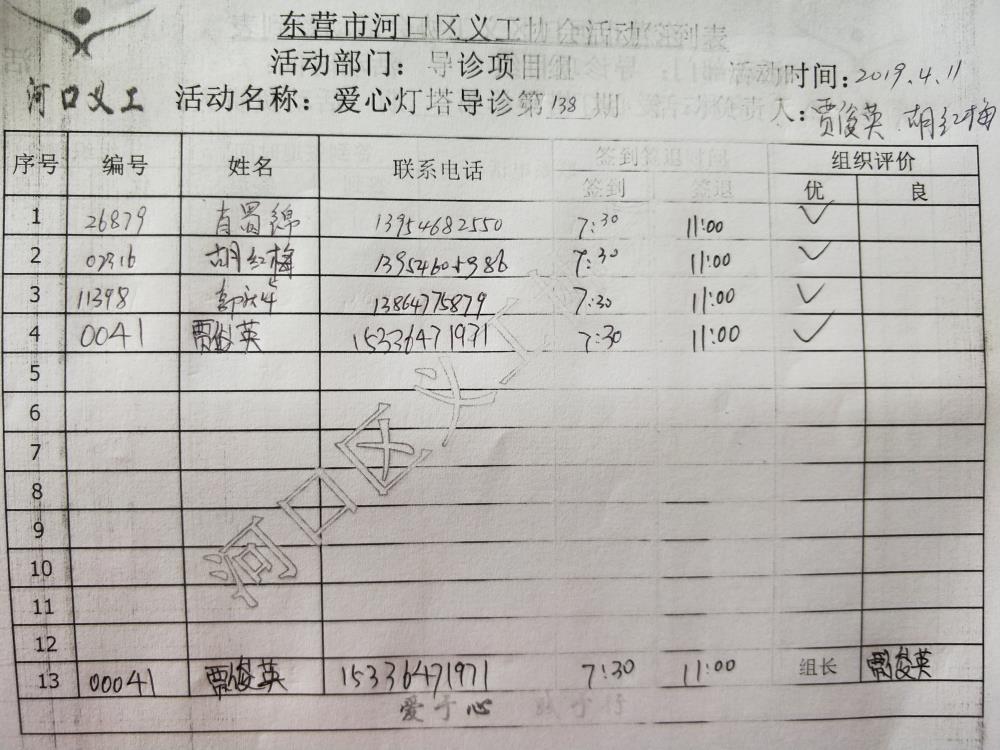 东营市河口区义工协会活动签到表
活动部门：导诊项目组 活动时间：2019.4.11
河口义工 活动名称：爱心灯塔导诊第138期 活动负责人：贾俊英 胡红梅
序号 编号 姓名 联系电话 签到签退时间 组织评价
签到 签退 优 良
1 26879 肖昌绵 13954682550 7:30 11:00 ✓
2 07916 胡红梅 13954605986 7:30 11:00 ✓
3 11398 13864775879 7:30 11:00 ✓
4 0041 贾俊英 15336471971 7:30 11:00 ✓
5
6
7
8
9
10
11
12
13 00041 贾俊英 15336471971 7:30 11:00 组长 贾俊英
爱于心 践于行
河口区义工